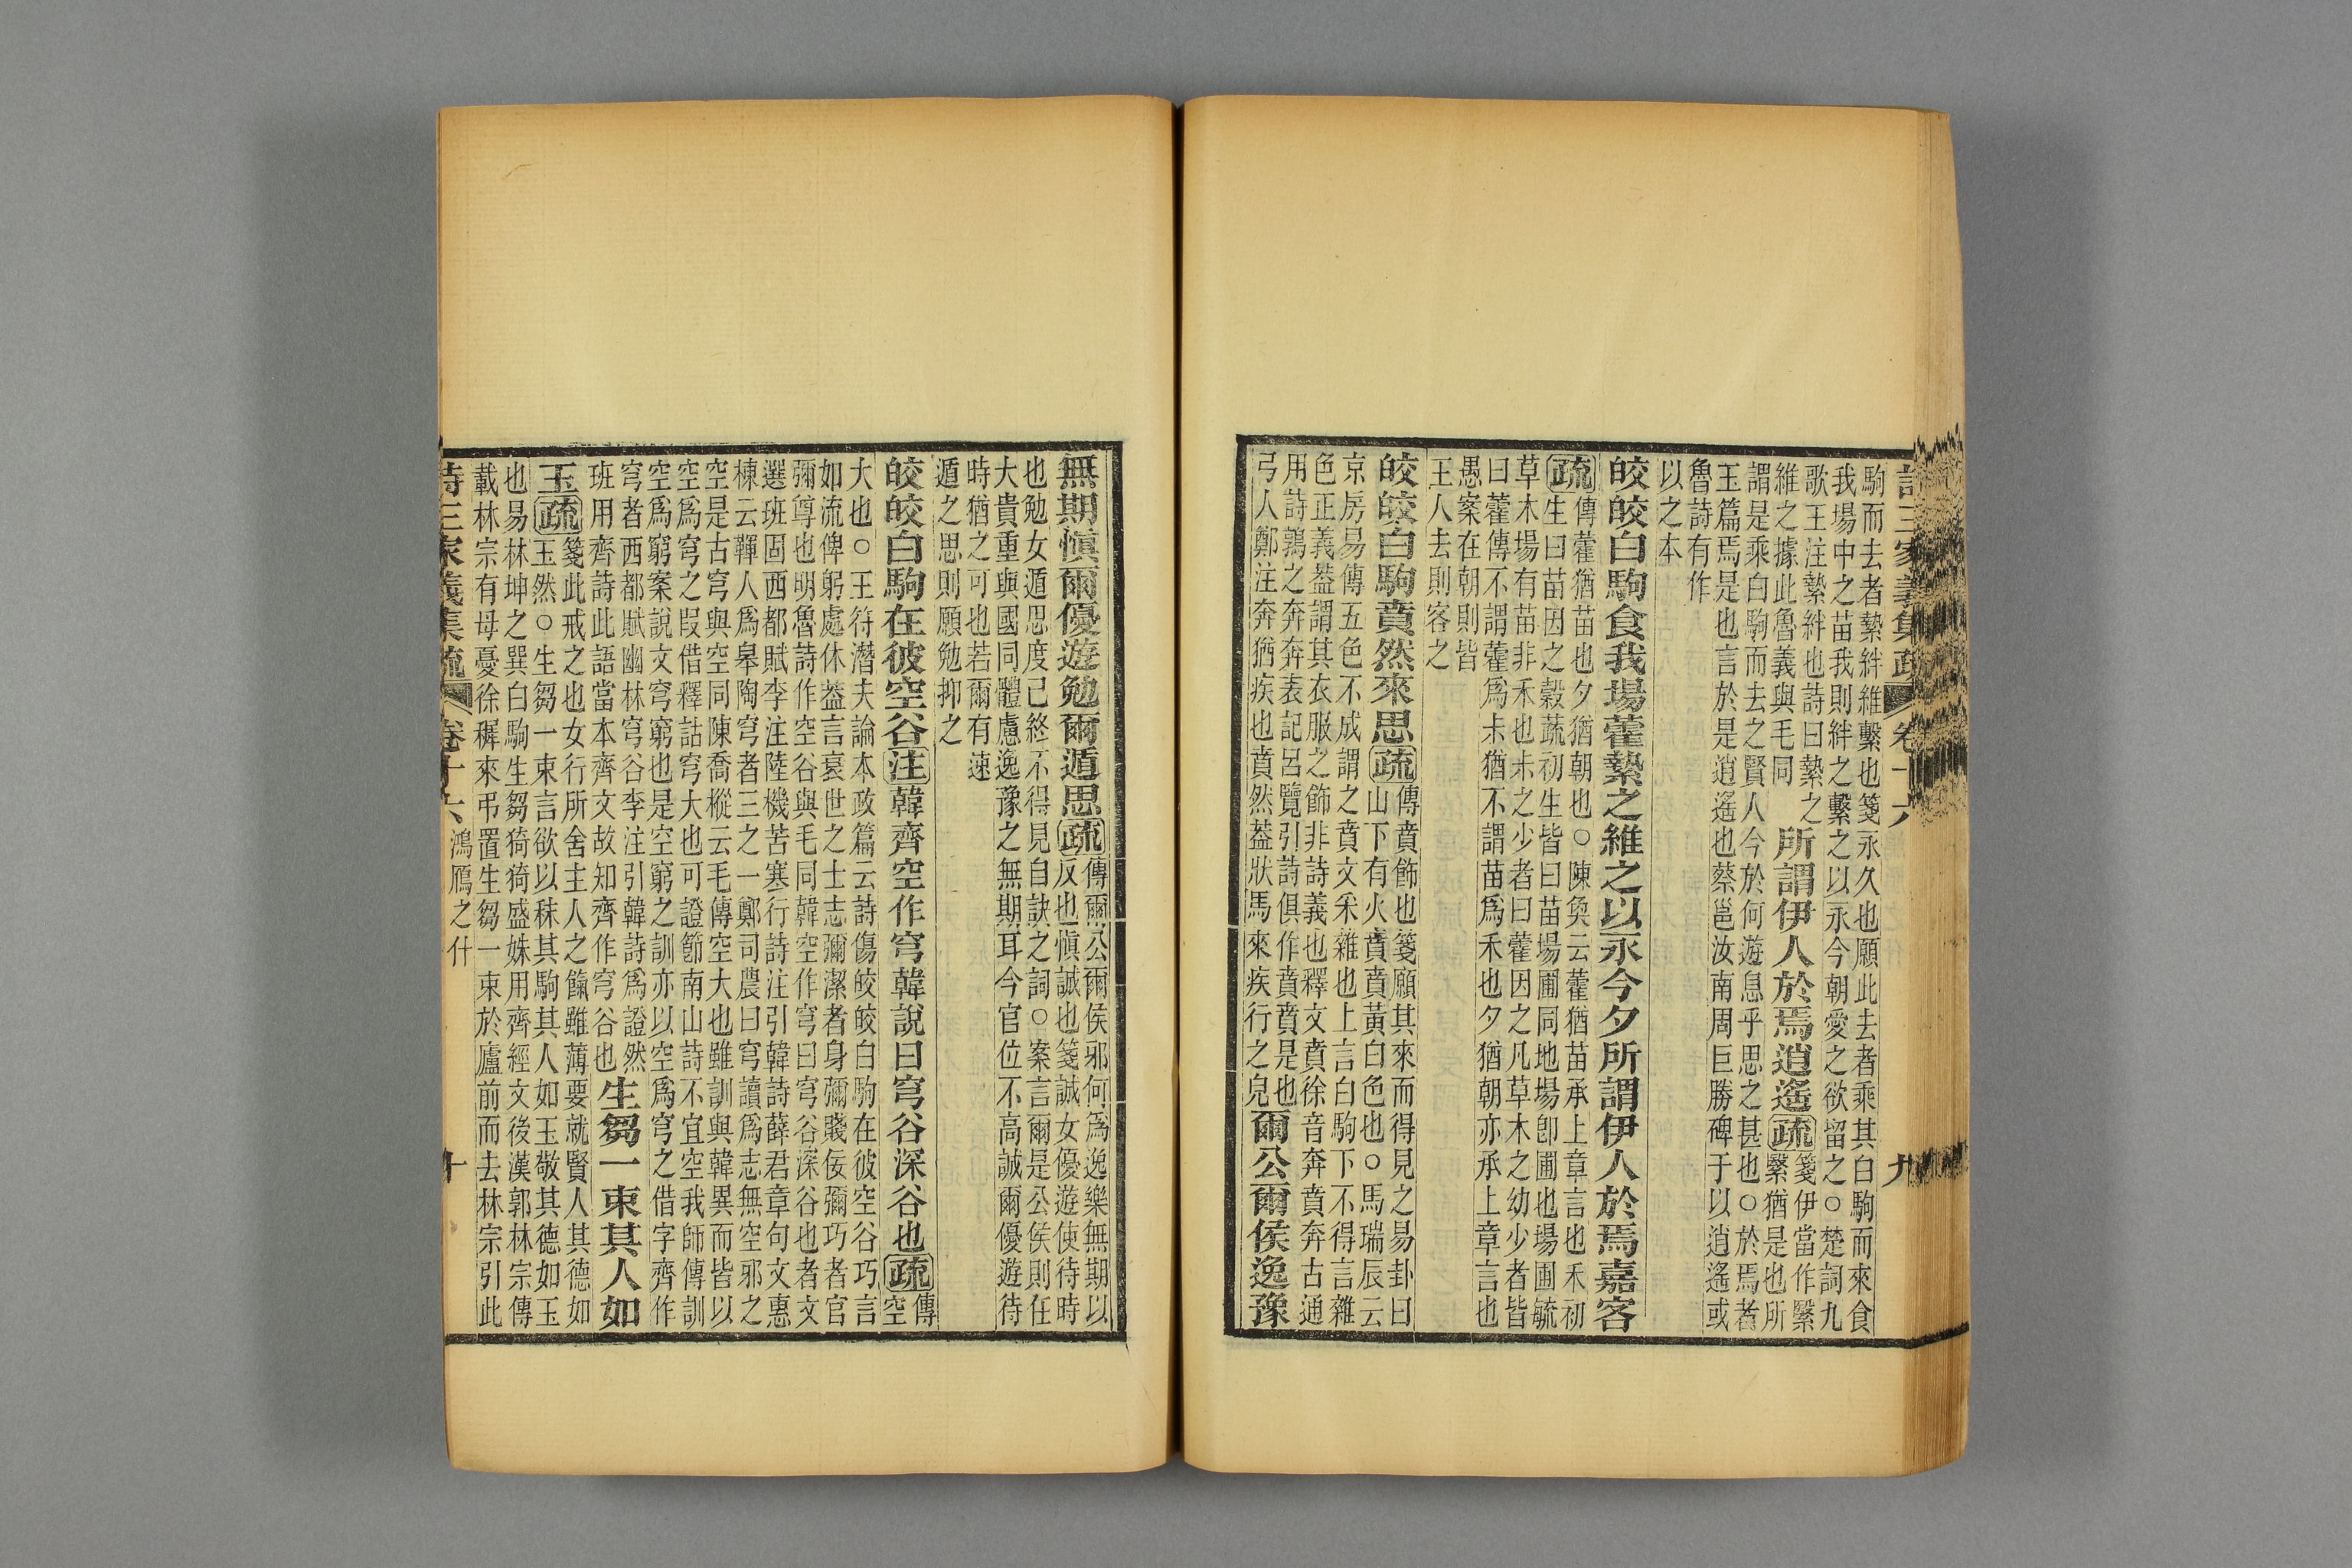 詩三家義集疏 卷十六 九
駒而去者縶絆維繫也箋永久也願此去者乘其白駒而來食
我場中之苗我則絆之繫之以永今朝愛之欲留之○楚詞九
歌王注縶絆也詩曰縶之
維之據此魯義與毛同
所謂伊人於焉逍遙疏
箋伊當作繄
繄猶是也所
謂是乘白駒而去之賢人今於何遊息乎思之甚也○於焉者
玉篇焉是也言於是逍遙也蔡邕汝南周巨勝碑于以逍遙或
魯詩有作
以之本
皎皎白駒食我場藿縶之維之以永今夕所謂伊人於焉嘉客
疏
傳藿猶苗也夕猶朝也○陳奐云藿猶苗承上章言也禾初
生曰苗因之穀蔬初生皆曰苗場圃同地場卽圃也場圃毓
草木場有苗非禾也未之少者曰藿因之凡草木之幼少者皆
曰藿傳不謂藿爲未猶不謂苗爲禾也夕猶朝亦承上章言也
愚案在朝則皆
王人去則客之
皎皎白駒賁然來思疏
傳賁飾也箋願其來而得見之易卦曰
山下有火賁賁黃白色也○馬瑞辰云
京房易傳五色不成謂之賁文采雜也上言白駒下不得言雜
色正義葢謂其衣服之飾非詩義也釋文賁徐音奔賁奔古通
用詩鶉之奔奔表記呂覽引詩俱作賁賁是也
弓人鄭注奔猶疾也賁然葢狀馬來疾行之皃
爾公爾侯逸豫
無期愼爾優遊勉爾遁思疏
傳爾公爾侯邪何爲逸樂無期以
反也愼誠也箋誠女優遊使待時
也勉女遁思度己終不得見自訣之詞○案言爾是公侯則任
大貴重與國同體慮逸豫之無期耳今官位不高誠爾優遊待
時猶之可也若爾有速
遁之思則願勉抑之
皎皎白駒在彼空谷注韓齊空作穹韓說曰穹谷深谷也疏
傳
空
大也○王符潛夫論本政篇云詩傷皎皎白駒在彼空谷巧言
如流俾躬處休葢言衰世之士志彌潔者身彌賤佞彌巧者官
彌尊也明魯詩作空谷與毛同韓空作穹曰穹谷深谷也者文
選班固西都賦李注陸機苦寒行詩注引韓詩薛君章句文惠
棟云鞸人爲皋陶穹者三之一鄭司農曰穹讀爲志無空邪之
空是古穹與空同陳喬樅云毛傳空大也雖訓與韓異而皆以
空爲穹之叚借釋詁穹大也可證節南山詩不宜空我師傳訓
空爲窮案說文穹窮也是空窮之訓亦以空爲穹之借字齊作
穹者西都賦幽林穹谷李注引韓詩爲證然
班用齊詩此語當本齊文故知齊作穹谷也
生芻一束其人如
玉疏
箋此戒之也女行所舍主人之餼雖薄要就賢人其德如
玉然○生芻一束言欲以秣其駒其人如玉敬其德如玉
也易林坤之巽白駒生芻猗猗盛姝用齊經文後漢郭林宗傳
載林宗有母憂徐穉來弔置生芻一束於廬前而去林宗引此
詩三家義集疏 卷十六 鴻鴈之什 十